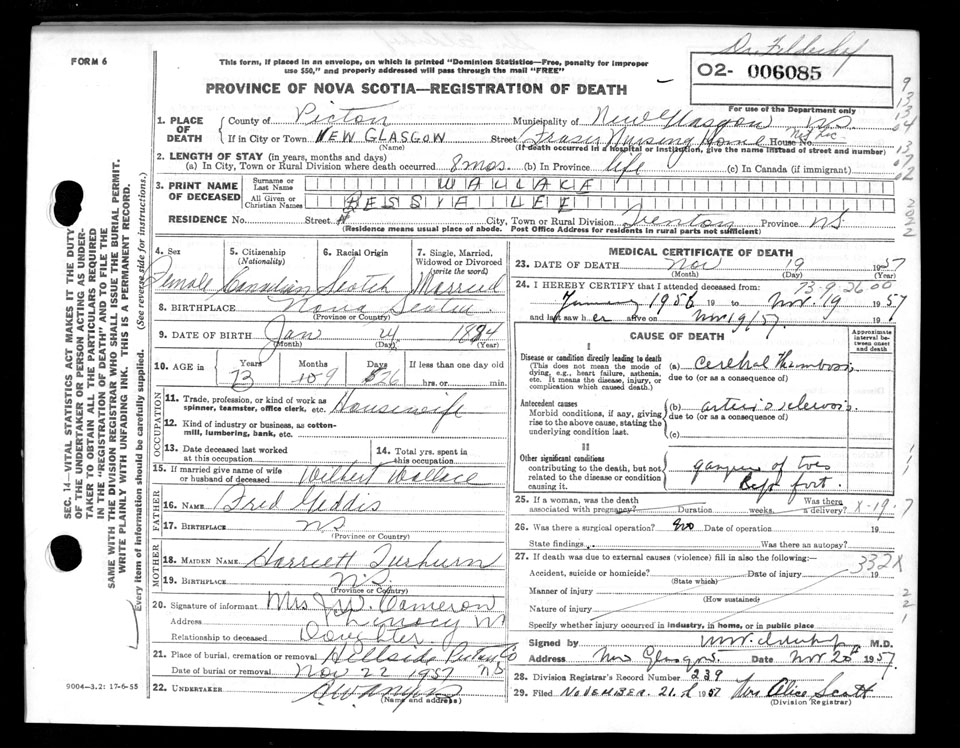 FORM 6
This form, if placed in an envelope, on which is printed "Dominion Statistics—Free, penalty for improper
use $50," and properly addressed will pass through the mail "FREE"
02- 006085
PROVINCE OF NOVA SCOTIA—REGISTRATION OF DEATH
For use of the Department only
1. PLACE OF DEATH
County of Pictou Municipality of New Glasgow NS
If in City or Town NEW GLASGOW Street Fraser Nursing Home House No.
(Name) (If death occurred in a hospital or institution, give the name instead of street and number)
2. LENGTH OF STAY (in years, months and days)
(a) In City, Town or Rural Division where death occurred 8 mos. (b) In Province life (c) In Canada (if immigrant)
3. PRINT NAME OF DECEASED
Surname or Last Name WALLACE
All Given or Christian Names BESSIE LEE
RESIDENCE No. Street City, Town or Rural Division Trenton Province NS
(Residence means usual place of abode. Post Office Address for residents in rural parts not sufficient)
4. Sex 5. Citizenship (Nationality) 6. Racial Origin 7. Single, Married, Widowed or Divorced (write the word)
Female Canadian Scotch Married
8. BIRTHPLACE Nova Scotia
(Province or Country)
9. DATE OF BIRTH Jan 24 1884
(Month) (Day) (Year)
10. AGE in Years Months Days If less than one day old
73 9 26 hrs. or min.
OCCUPATION
11. Trade, profession, or kind of work as spinner, teamster, office clerk, etc. Housewife
12. Kind of industry or business, as cotton-mill, lumbering, bank, etc.
13. Date deceased last worked at this occupation
14. Total yrs. spent in this occupation
15. If married give name of wife or husband of deceased Wilbert Wallace
FATHER
16. NAME Fred Geddis
17. BIRTHPLACE NS
(Province or Country)
MOTHER
18. MAIDEN NAME Harriett
19. BIRTHPLACE N.S.
(Province or Country)
20. Signature of informant Mrs Cameron
Address
Relationship to deceased Daughter
21. Place of burial, cremation or removal Hillside Pictou Co
Date of burial or removal Nov 22 1957 NS
22. UNDERTAKER
(Name and address)
9004—3.2: 17-6-55
MEDICAL CERTIFICATE OF DEATH
23. DATE OF DEATH Nov 19 1957
(Month) (Day) (Year)
24. I HEREBY CERTIFY that I attended deceased from:
73-9-26 00
January 1956 19 to Nov. 19 1957
and last saw her alive on Nov 19/57.
CAUSE OF DEATH
Approximate interval between onset and death
I
Disease or condition directly leading to death
(This does not mean the mode of dying, e.g., heart failure, asthenia, etc. It means the disease, injury, or complication which caused death.)
(a) Cerebral Thrombosis
due to (or as a consequence of)
Antecedent causes
Morbid conditions, if any, giving rise to the above cause, stating the underlying condition last.
(b) arteriosclerosis
due to (or as a consequence of)
(c)
II
Other significant conditions
contributing to the death, but not related to the disease or condition causing it.
gangrene of toes
25. If a woman, was the death associated with pregnancy? Duration weeks. Was there a delivery? X-19-7
26. Was there a surgical operation? No Date of operation 19
State findings Was there an autopsy?
27. If death was due to external causes (violence) fill in also the following:
332X
Accident, suicide or homicide? Date of injury 19
(State which)
Manner of injury
(How sustained)
Nature of injury
Specify whether injury occurred in industry, in home, or in public place
Signed by M.D.
Address New Glasgow Date Nov 20 1957
28. Division Registrar's Record Number 239
29. Filed NOVEMBER 21 1957 Mrs Alice Scott
(Division Registrar)
SEC. 14—VITAL STATISTICS ACT MAKES IT THE DUTY
OF THE UNDERTAKER OR PERSON ACTING AS UNDER-
TAKER TO OBTAIN ALL THE PARTICULARS REQUIRED
IN THE "REGISTRATION OF DEATH" AND TO FILE THE
SAME WITH THE DIVISION REGISTRAR WHO SHALL ISSUE THE BURIAL PERMIT.
WRITE PLAINLY WITH UNFADING INK. THIS IS A PERMANENT RECORD.
Every item of information should be carefully supplied. (See reverse side for instructions.)